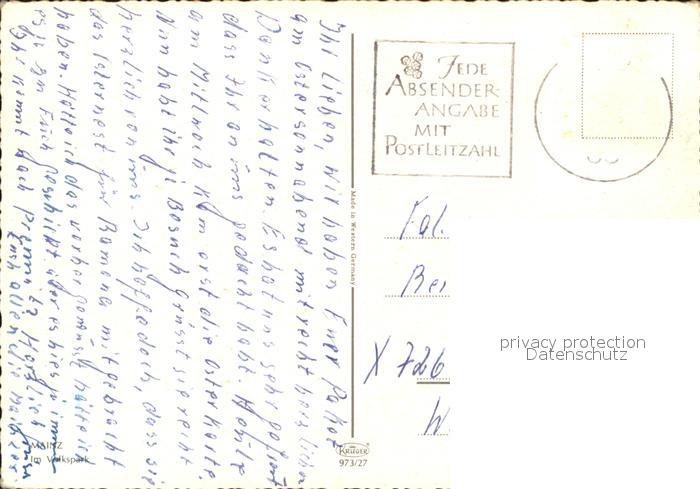 Ihr Lieben, wir haben Euer Paket
am Ostersonnabend mit recht herzlichen
Dank erhalten. Es hat uns sehr gefreut
dass Ihr an uns gedacht habt.
am Mittwoch kam erst die Osterkarte.
Nun habt ihr ja Besuch grüsst sie recht
herzlich von uns. Ich hoffe doch, dass sie
das Osternest für Ramona mitgebracht
haben. Hätte ich das vorher gewusst hätte ich
es ja zu Euch geschickt
Ihr kommt nach
MAINZ
Im Volkspark
Made in Western Germany
KRÜGER
973/27
JEDE
ABSENDER-
ANGABE
MIT
POSTLEITZAHL
Fal.
X 726
privacy protection
Datenschutz